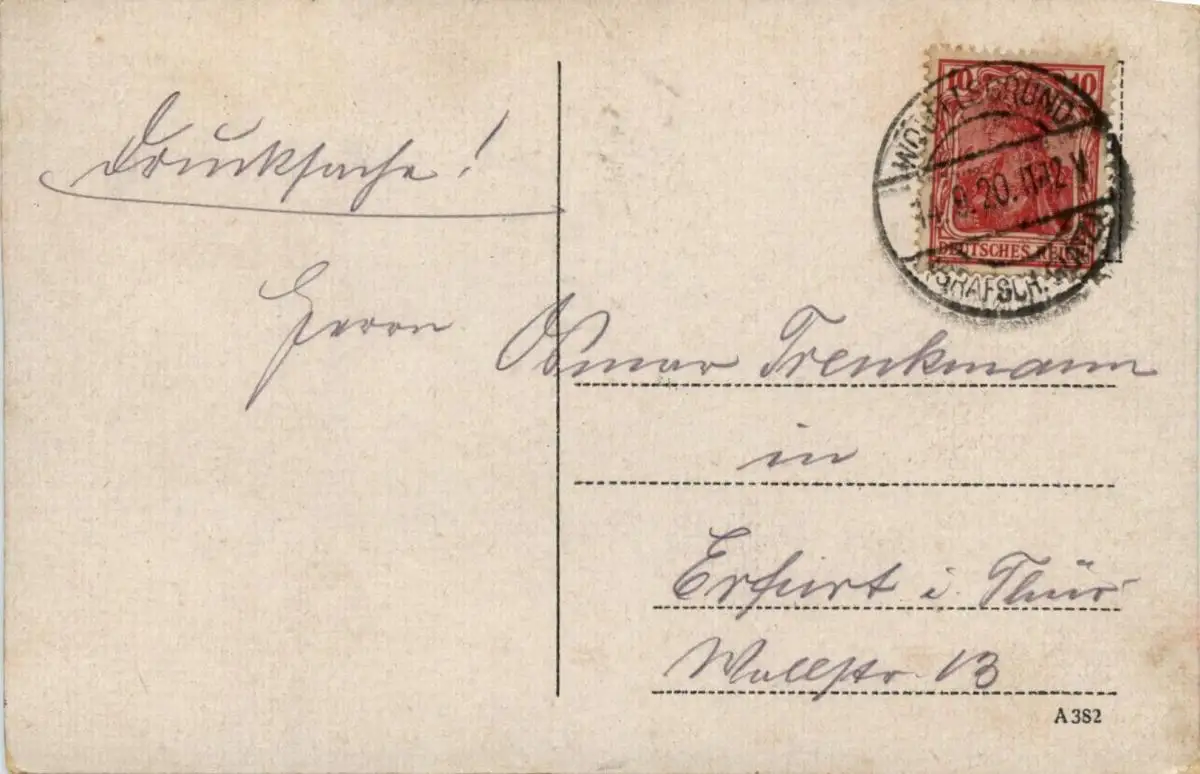 Drucksache!
10 10
DEUTSCHES REICH
WÖLFELSGRUND
14.9.20. 11-12 V
(GRAFSCH. GLATZ)
Herrn Osmar Trenkmann
in
Erfurt i. Thür
Wallstr. 13
A 382